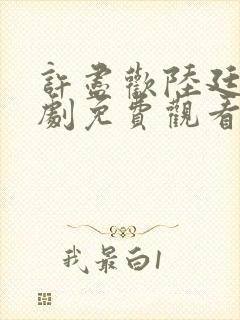 許盡歡陸廷
劇免費觀看
我最白1